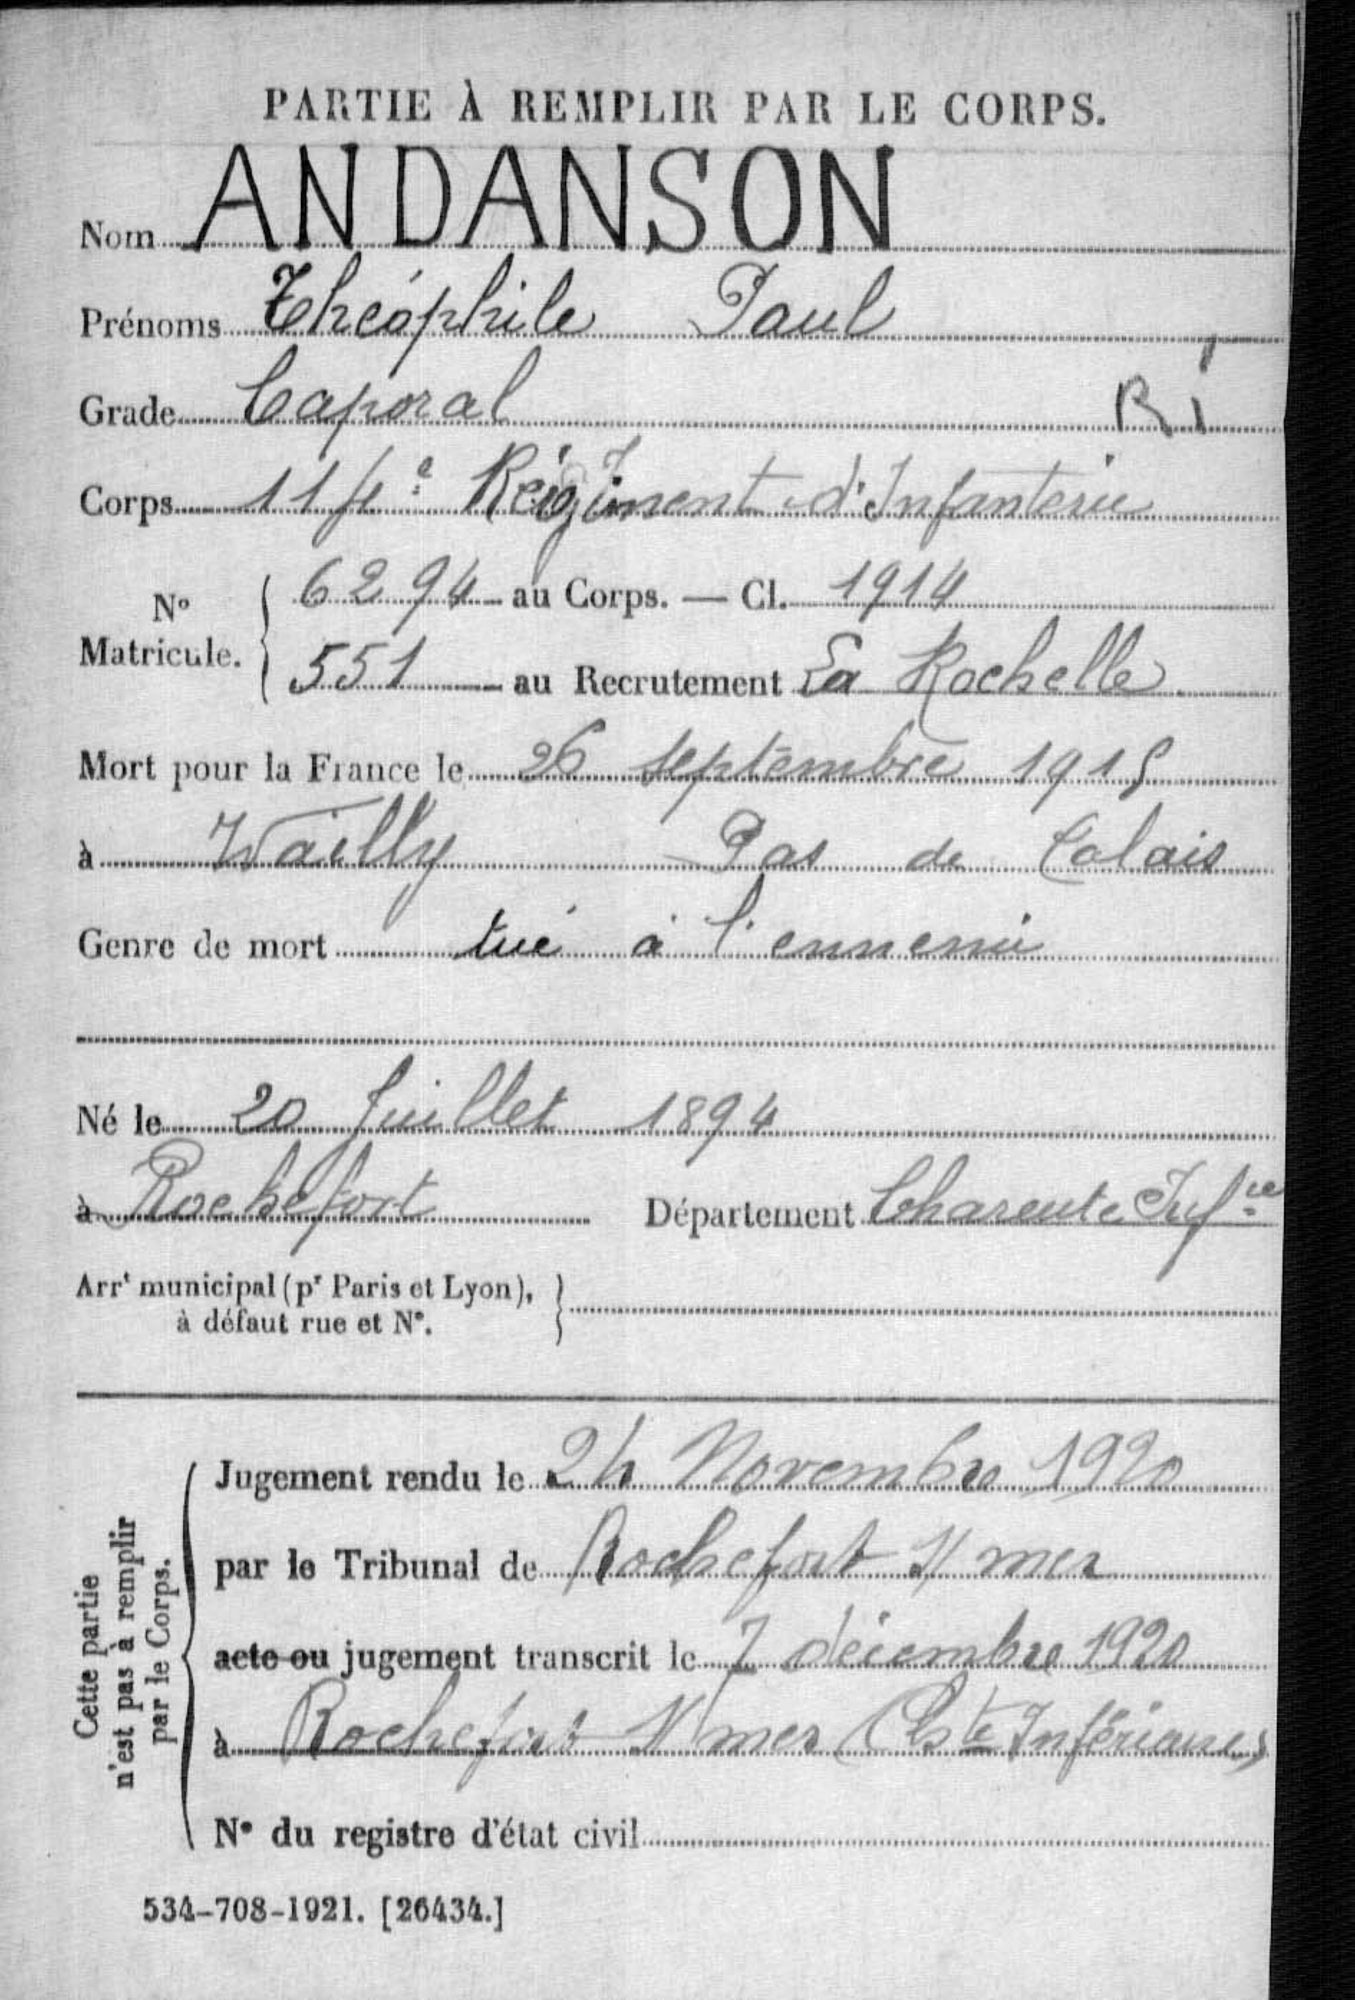 PARTIE À REMPLIR PAR LE CORPS.
Nom ANDANSON
Prénoms Théophile Paul
Grade Caporal
R I
Corps 114e Régiment d'Infanterie
N° Matricule. { 6294 au Corps. — Cl. 1914
551 au Recrutement La Rochelle
Mort pour la France le 26 septembre 1915
à Wailly Pas de Calais
Genre de mort tué à l'ennemi
Né le 20 Juillet 1894
à Rochefort Département Charente Infre
Arrt municipal (pr Paris et Lyon),
à défaut rue et N°.
Cette partie
n'est pas à remplir
par le Corps.
Jugement rendu le 24 Novembre 1920
par le Tribunal de Rochefort s/ mer
acte ou jugement transcrit le 7 décembre 1920
à Rochefort s/ mer (Chte Inférieure)
N° du registre d'état civil
534-708-1921. [26434.]